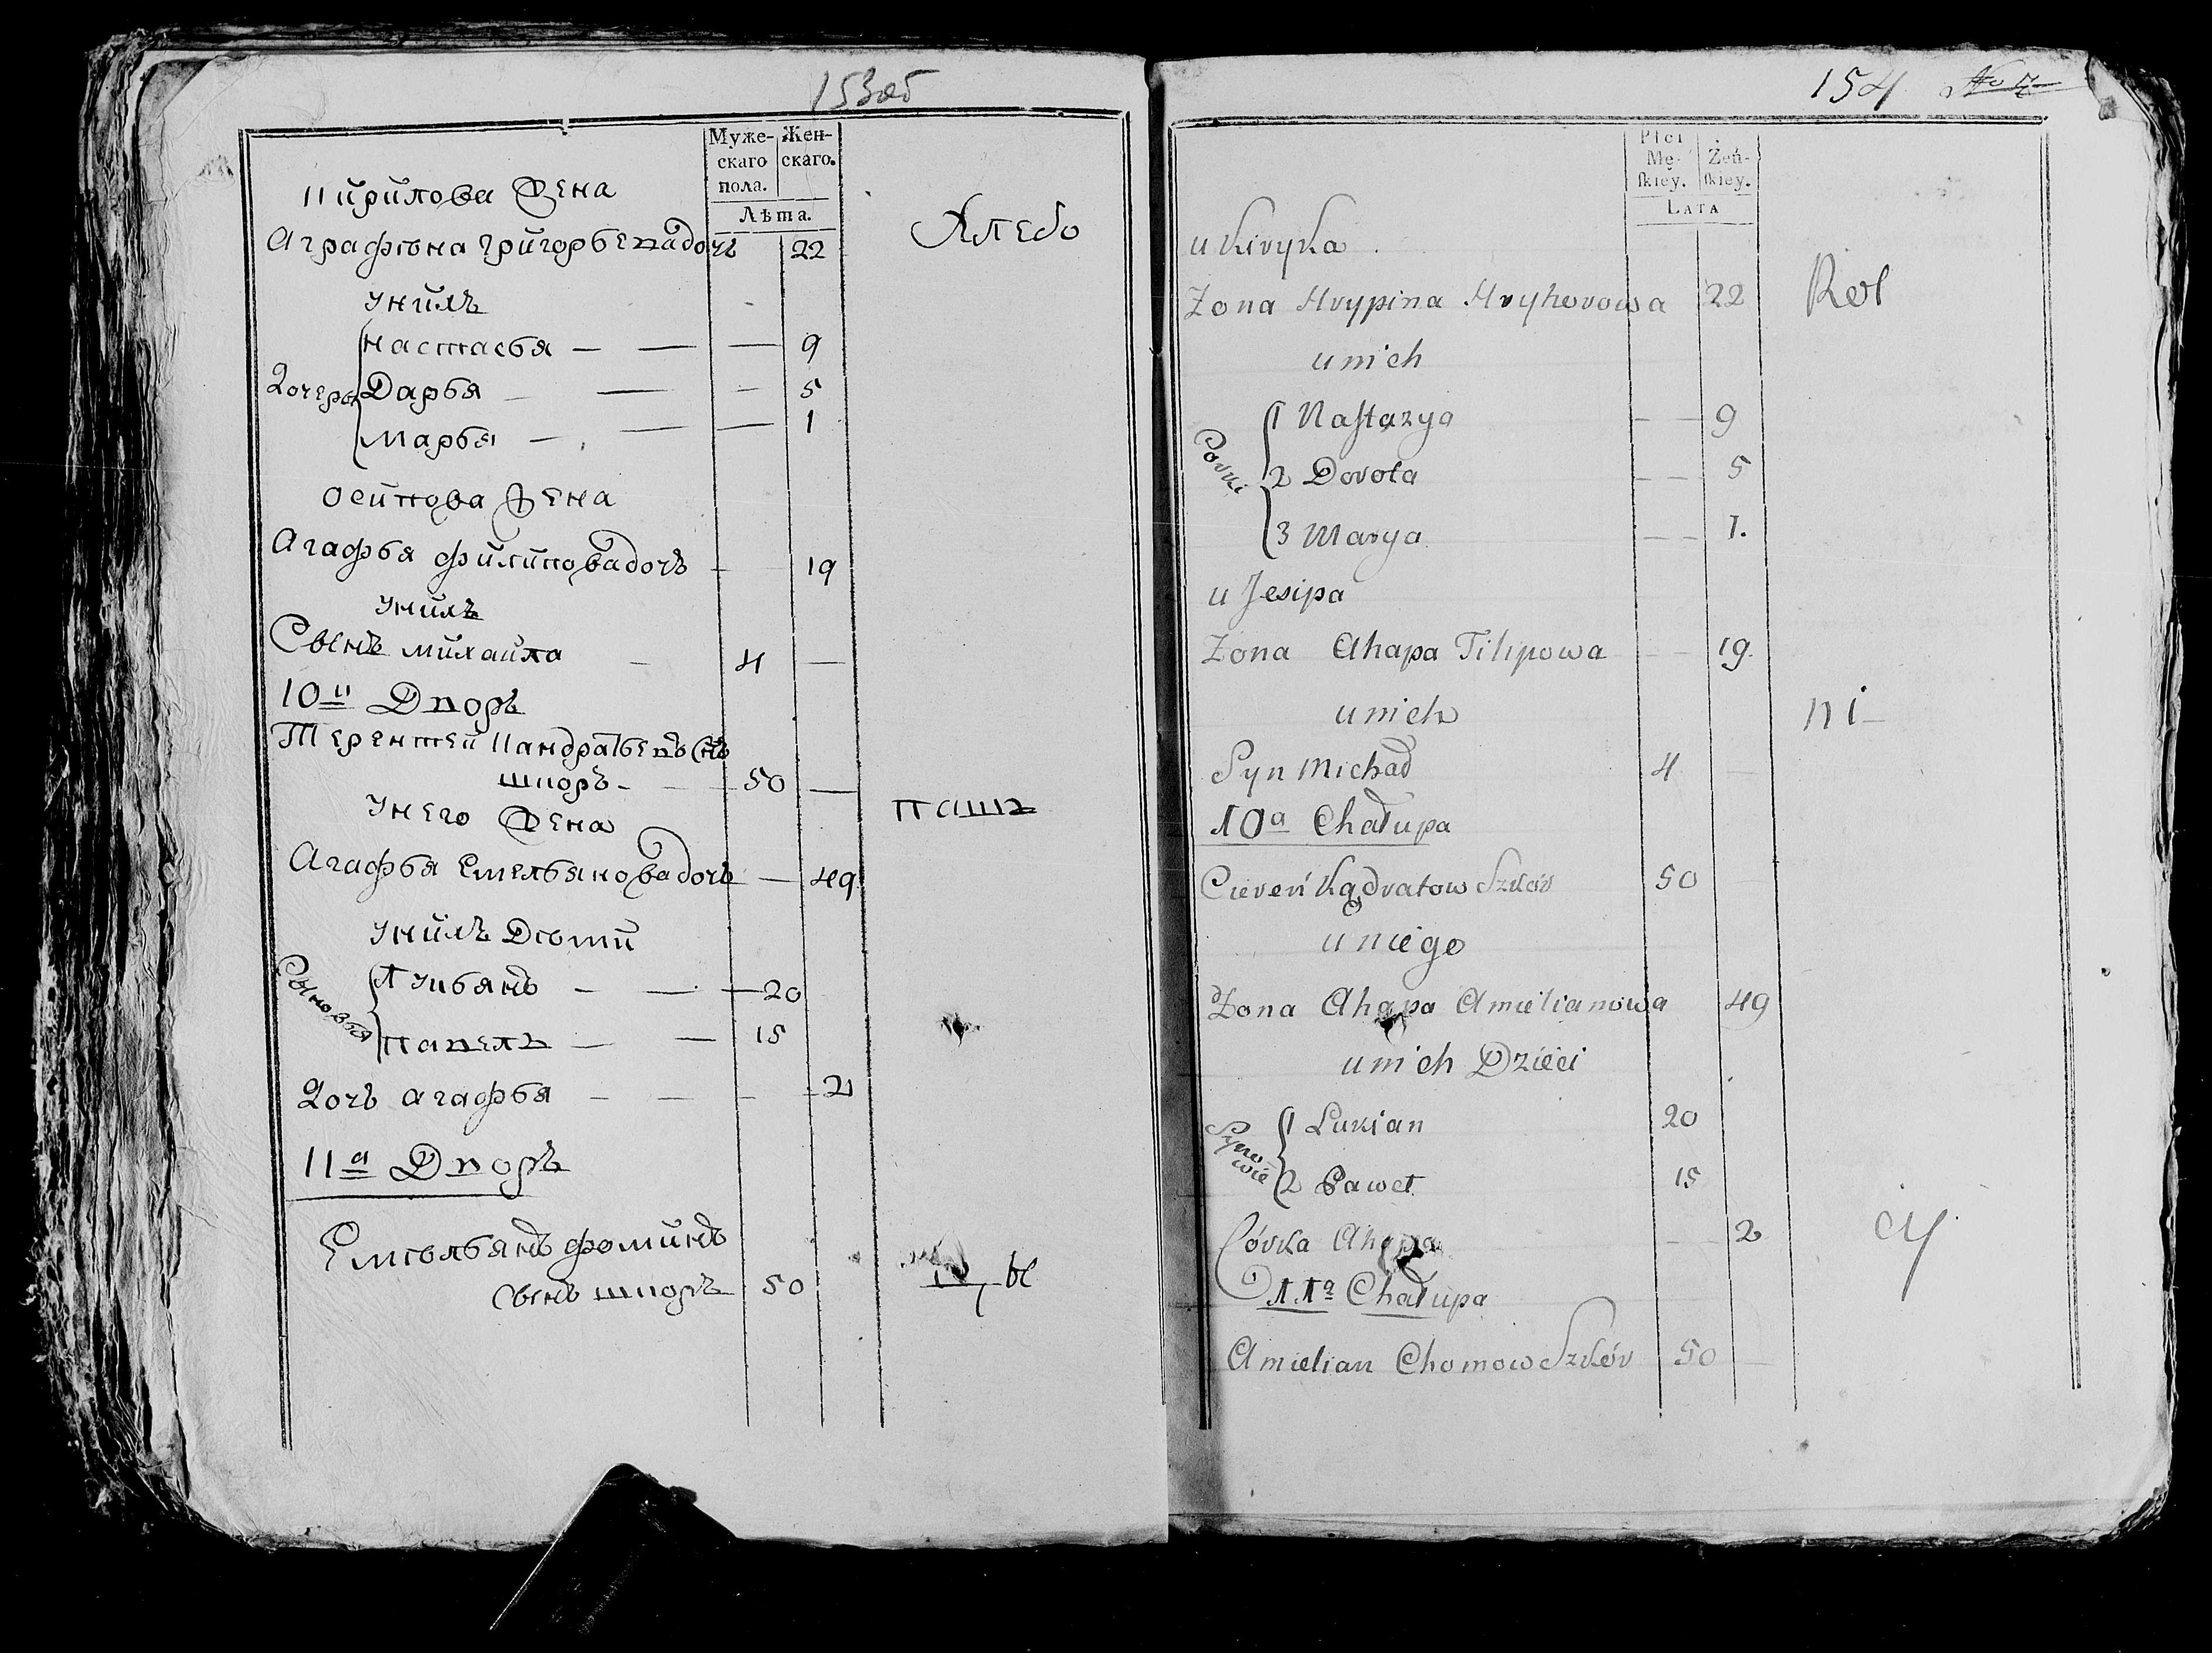 153об
Муже- Жен-
скаго скаго.
пола.
Лѣта.
Кирилова Жена
Аграфѣна Григорьева дочь 22
Хлебо
У нихъ
Настасья — — — 9
Дочеры
Дарья — — — 5
Марья — — — 1
Осипова Жена
Агафья Филипова дочь — 19
У нихъ
Сынъ Михайла — 4 —
10й Дворъ
Терентей Кандратьевъ Снъ
шкоръ — 50 —
паш
У него Жена
Агафья Емельянова дочь — 49
У нихъ Дѣти
Сыновья
Лукьянъ — — — 20
Павелъ — — 15
Дочь Агафья — — — 2
11й Дворъ
Емѣльянъ Фоминъ
сынъ шкоръ 50
цы
154 No 7
Płci
Mę- Żeń-
ſkiey. ſkiey.
LATA
u Kiryka
Żona Hrypina Hryhorowa 22
Rol
u nich
Corki
1 Naſtazya — — 9
2 Dorota — — 5
3 Marya — — 1.
u Jesipa
Żona Ahapa Filipowa — 19.
u nich
ni
Syn Michał 4 —
10a Chałupa
Cereń Kądratow Szkór 50
u niego
Żona Ahapa Amielianowa 49
u nich Dzieci
Synowie
1 Lukian 20
2 Paweł 15
Córka Ahapa — 2
cy
11a Chałupa
Amielian Chomow Szkór 50 —